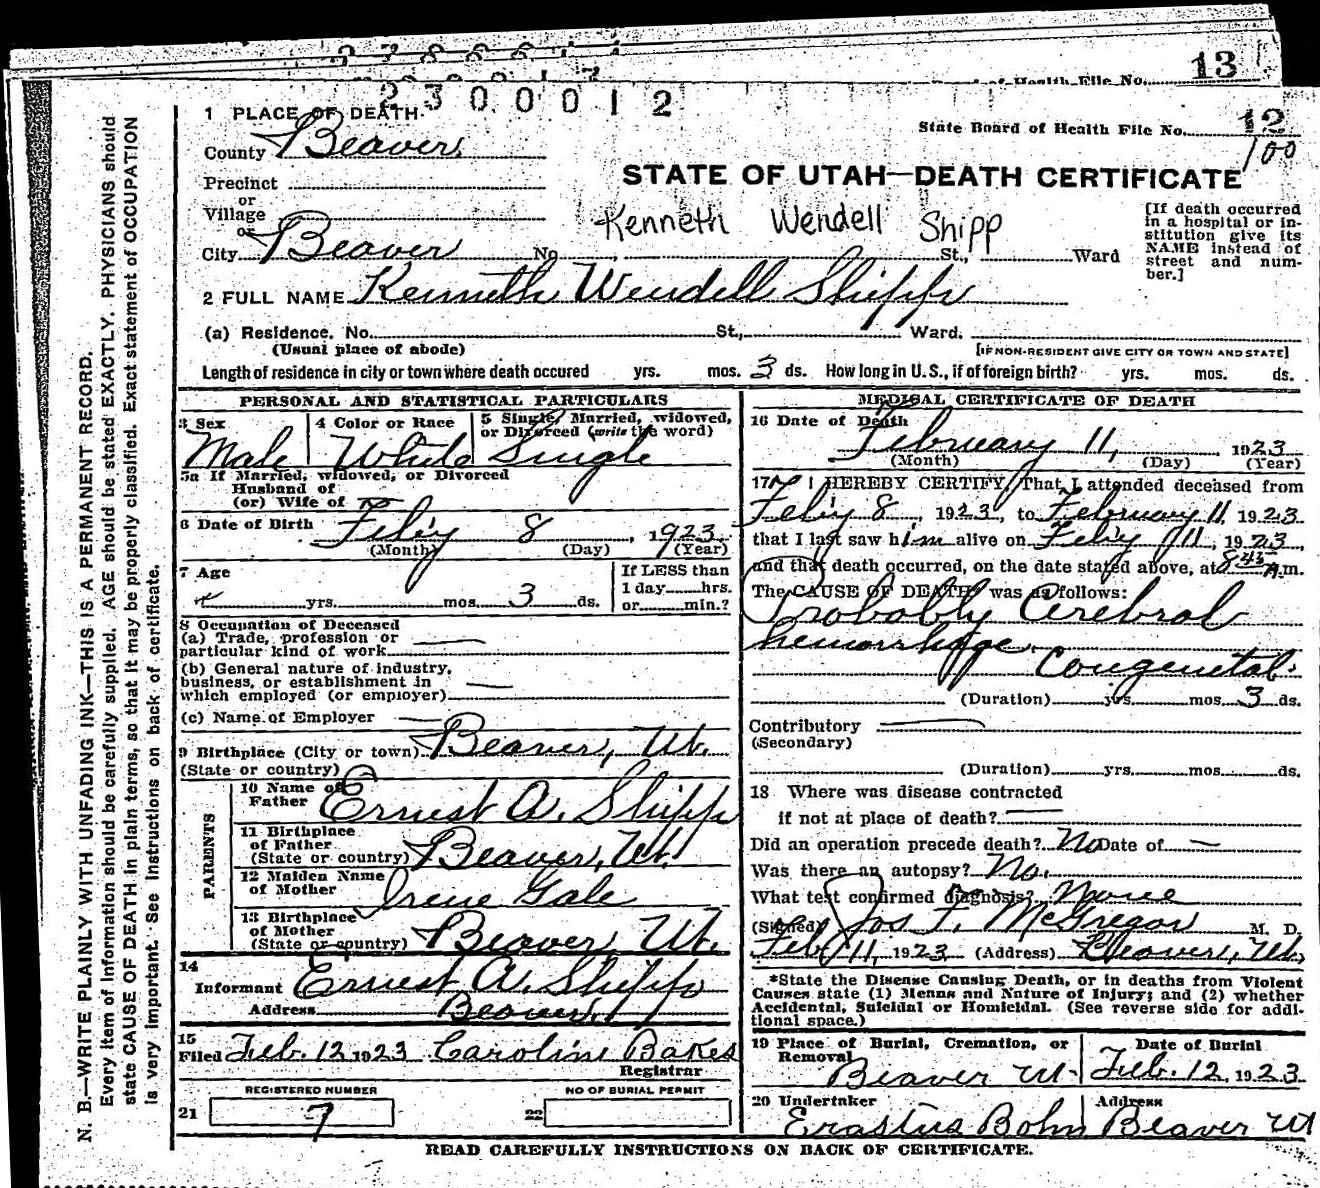 13
of Health File No.
2300012
1 PLACE OF DEATH
State Board of Health File No. 12
100
County Beaver
STATE OF UTAH—DEATH CERTIFICATE
Precinct
or
Village
or
City Beaver No. St., Ward
Kenneth Wendell Shipp
[If death occurred in a hospital or institution give its NAME instead of street and number.]
2 FULL NAME Kenneth Wendell Shipp
(a) Residence. No. St., Ward.
(Usual place of abode) [IF NON-RESIDENT GIVE CITY OR TOWN AND STATE]
Length of residence in city or town where death occured yrs. mos. 3 ds. How long in U. S., if of foreign birth? yrs. mos. ds.
PERSONAL AND STATISTICAL PARTICULARS
3 Sex Male
4 Color or Race White
5 Single, Married, widowed, or Divorced (write the word) Single
5a If Married, widowed, or Divorced
Husband of
(or) Wife of
6 Date of Birth Feb'y 8, 1923
(Month) (Day) (Year)
7 Age yrs. mos. 3 ds.
If LESS than
1 day hrs.
or min.?
8 Occupation of Deceased
(a) Trade, profession or
particular kind of work
(b) General nature of industry,
business, or establishment in
which employed (or employer)
(c) Name of Employer
9 Birthplace (City or town) Beaver, Ut.
(State or country)
PARENTS
10 Name of
Father Ernest A. Shipp
11 Birthplace
of Father
(State or country) Beaver, Ut.
12 Maiden Name
of Mother Irene Gale
13 Birthplace
of Mother
(State or country) Beaver, Ut.
14
Informant Ernest A. Shipp
Address Beaver,
15
Filed Feb. 12, 1923 Caroline Bakes
Registrar
REGISTERED NUMBER
21 7
NO OF BURIAL PERMIT
22
MEDICAL CERTIFICATE OF DEATH
16 Date of Death
February 11, 1923
(Month) (Day) (Year)
17 I HEREBY CERTIFY, That I attended deceased from
Feb'y 8, 1923, to February 11, 1923
that I last saw him alive on Feb'y 11, 1923,
and that death occurred, on the date stated above, at 8 45 A.m.
The CAUSE OF DEATH was as follows:
Probably Cerebral
hemorrhage
Congenital.
(Duration) yrs. mos. 3 ds.
Contributory
(Secondary)
(Duration) yrs. mos. ds.
18 Where was disease contracted
if not at place of death?
Did an operation precede death? No Date of —
Was there an autopsy? No.
What test confirmed diagnosis? None
(Signed) Jos F. McGregor M. D.
Feb 11, 1923 (Address) Beaver, Ut.
*State the Disease Causing Death, or in deaths from Violent
Causes state (1) Means and Nature of Injury; and (2) whether
Accidental, Suicidal or Homicidal. (See reverse side for addi-
tional space.)
19 Place of Burial, Cremation, or
Removal
Beaver Ut.
Date of Burial
Feb. 12, 1923
20 Undertaker
Erastus Bohn
Address
Beaver Ut
READ CAREFULLY INSTRUCTIONS ON BACK OF CERTIFICATE.
N. B.—WRITE PLAINLY WITH UNFADING INK—THIS IS A PERMANENT RECORD.
Every item of information should be carefully supplied. AGE should be stated EXACTLY. PHYSICIANS should
state CAUSE OF DEATH in plain terms, so that it may be properly classified. Exact statement of OCCUPATION
is very important. See instructions on back of certificate.